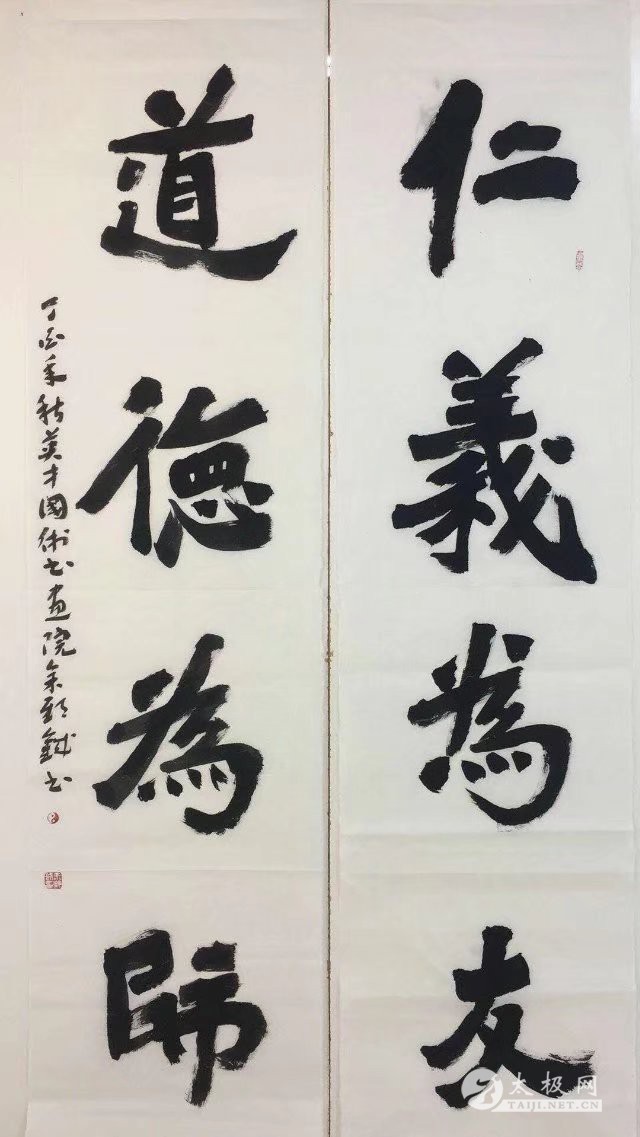 仁義為友
道德為師
丁酉年秋英才國術書畫院余功鉞書
太极网
TAIJI.NET.CN